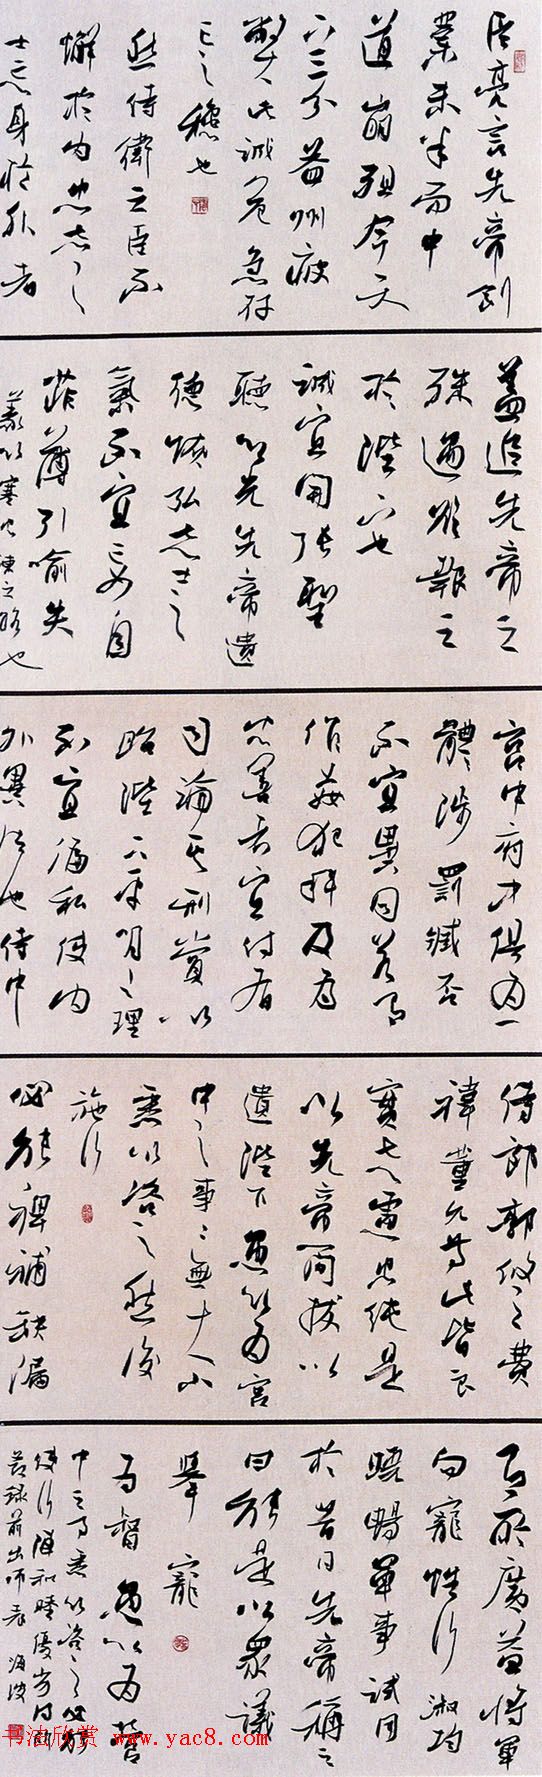 臣亮言先帝創
業未半而中
道崩殂今天
下三分益州疲
弊此誠危急存
亡之穐也
然侍衛之臣不
懈於內忠志之
士忘身於外者
蓋追先帝之
殊遇欲報之
於陛下也
誠宜開張聖
聽以光先帝遺
德恢弘志士之
氣不宜妄自
菲薄引喻失
義以塞忠諫之路也
宮中府中俱為一
體陟罰臧否
不宜異同若有
作姦犯科及為
忠善者宜付有
司論其刑賞以
昭陛下平明之理
不宜偏私使內
外異法也侍中
侍郎郭攸之費
禕董允等此皆良
實志慮忠純是
以先帝簡拔以
遺陛下愚以為宮
中之事事無大小
悉以咨之然後
施行
必能裨補缺漏
有所廣益將軍
向寵性行淑均
曉暢軍事試用
於昔日先帝稱之
曰能是以眾議
舉寵
為督愚以為營
中之事悉以咨之必能
使行陣和睦優劣得所
節錄前出師表
书法欣赏 www.yac8.com